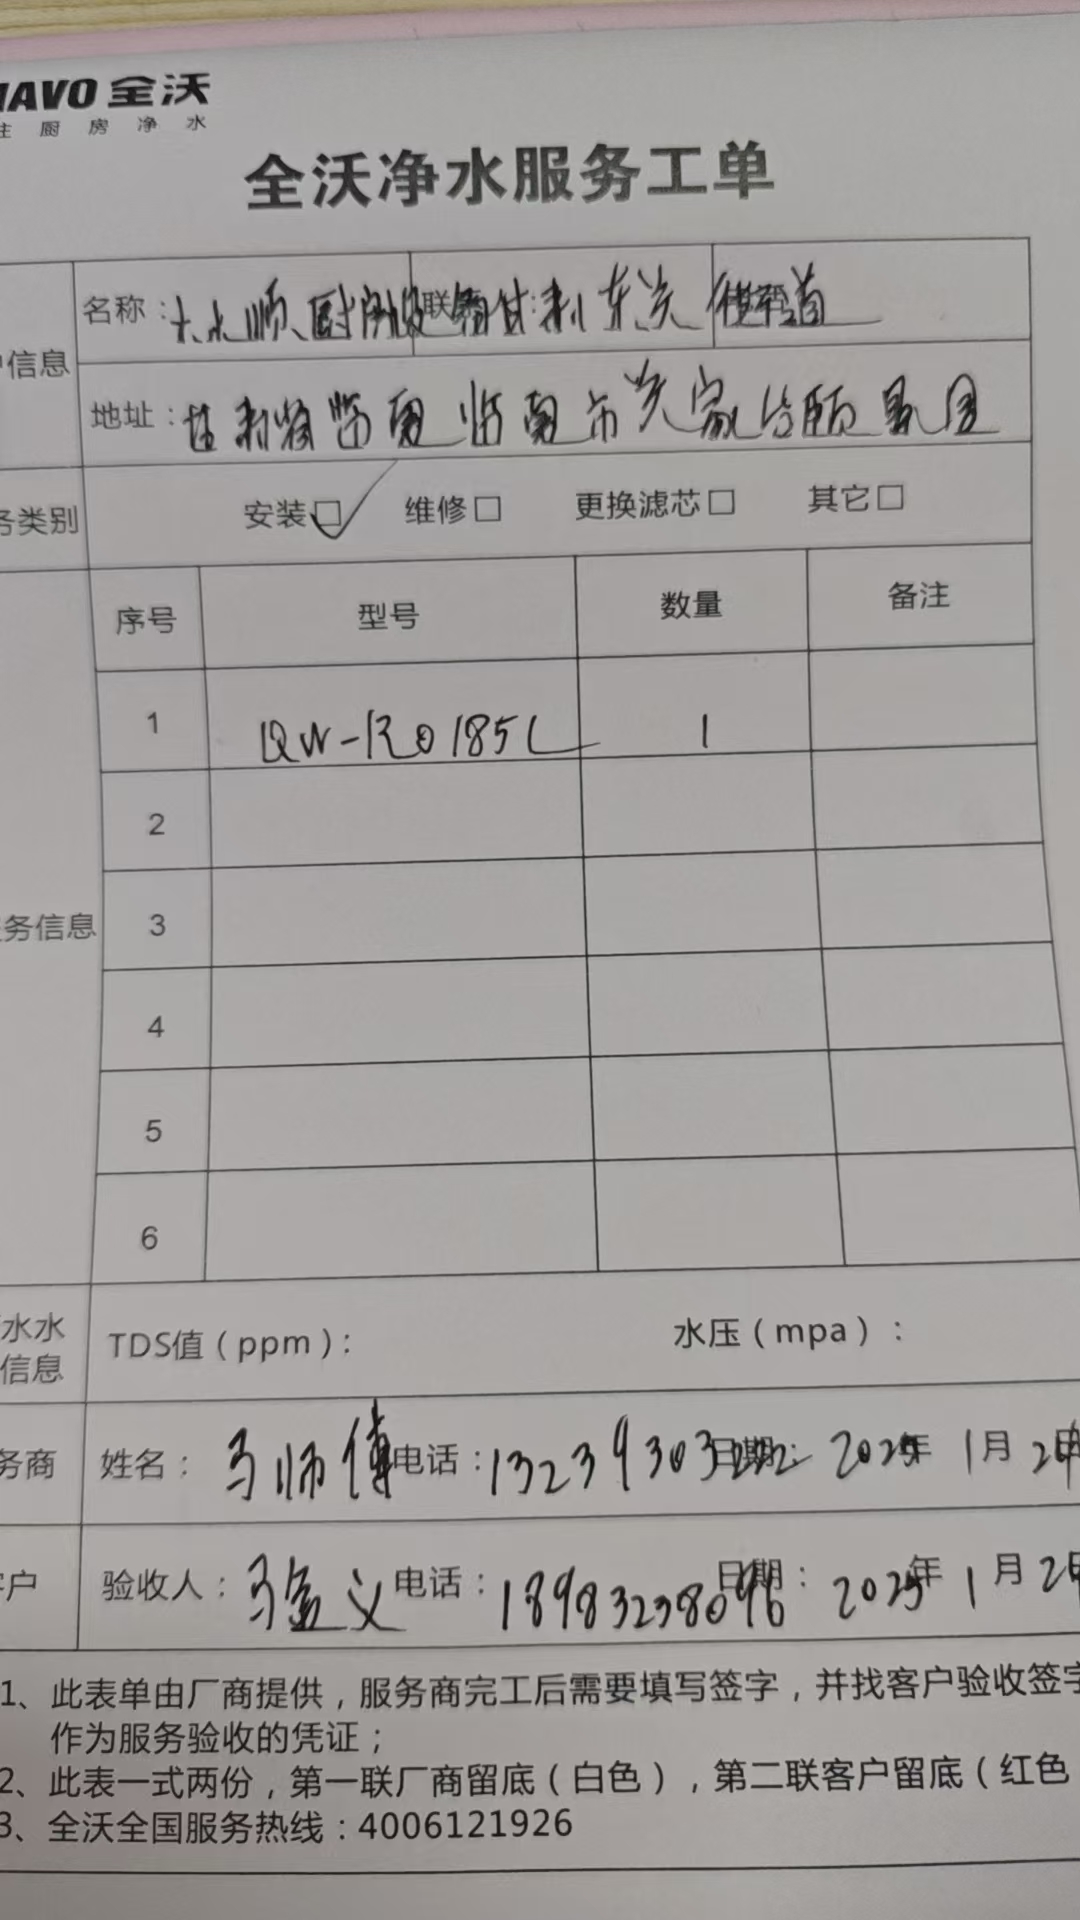 NAVO 全沃
住厨房净水
全沃净水服务工单
名称：六六顺厨房设
信息
地址：
务类别 安装☑ 维修□ 更换滤芯□ 其它□
序号 型号 数量 备注
1 QW-RO185L 1
2
务信息 3
4
5
6
水水
信息
TDS值（ppm）： 水压（mpa）：
务商 姓名：马师傅 电话：13239303222 日期：2025年1月2
户 验收人：马金义 电话：18983238096 日期：2025年1月2
1、此表单由厂商提供，服务商完工后需要填写签字，并找客户验收签字
作为服务验收的凭证；
2、此表一式两份，第一联厂商留底（白色），第二联客户留底（红色
3、全沃全国服务热线：4006121926